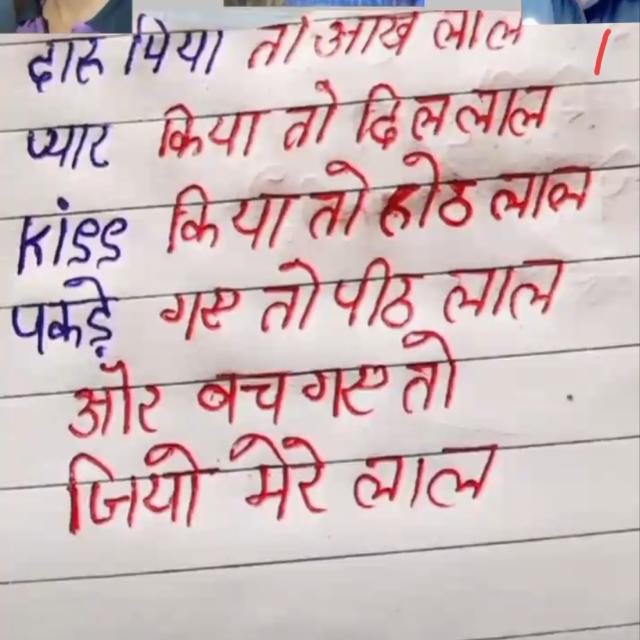 दारू पिया तो आख लाल
प्यार किया तो दिल लाल
kiss किया तो होठ लाल
पकड़े गए तो पीठ लाल
और बच गए तो
जियो मेरे लाल